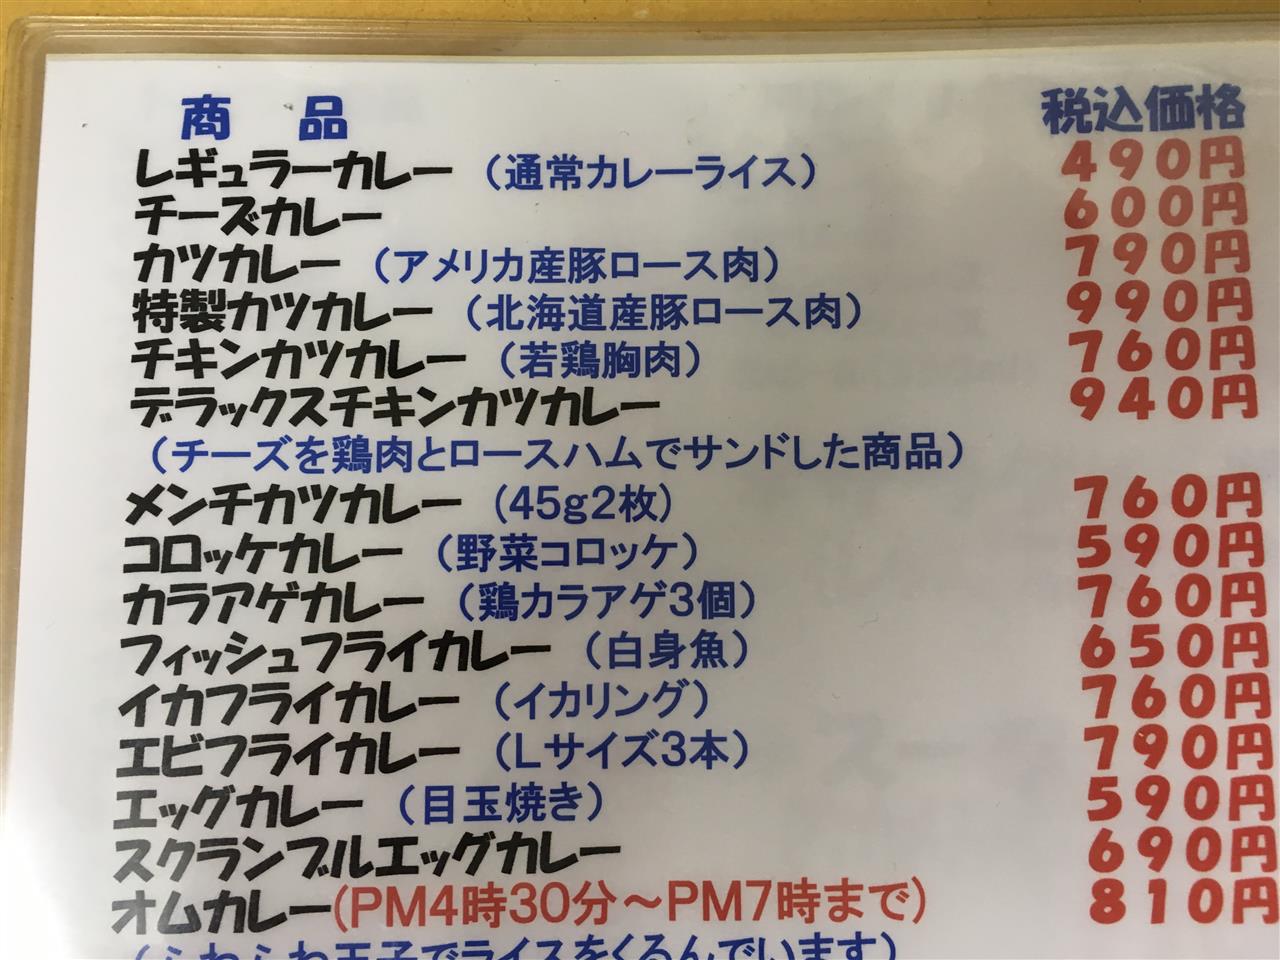 商　品　税込価格
レギュラーカレー（通常カレーライス）　490円
チーズカレー　600円
カツカレー（アメリカ産豚ロース肉）　790円
特製カツカレー（北海道産豚ロース肉）　990円
チキンカツカレー（若鶏胸肉）　760円
デラックスチキンカツカレー　940円
（チーズを鶏肉とロースハムでサンドした商品）
メンチカツカレー（45g2枚）　760円
コロッケカレー（野菜コロッケ）　590円
カラアゲカレー（鶏カラアゲ3個）　760円
フィッシュフライカレー（白身魚）　650円
イカフライカレー（イカリング）　760円
エビフライカレー（Lサイズ3本）　790円
エッグカレー（目玉焼き）　590円
スクランブルエッグカレー　690円
オムカレー（PM4時30分～PM7時まで）　810円
（ふわふわ玉子でライスをくるんでいます）